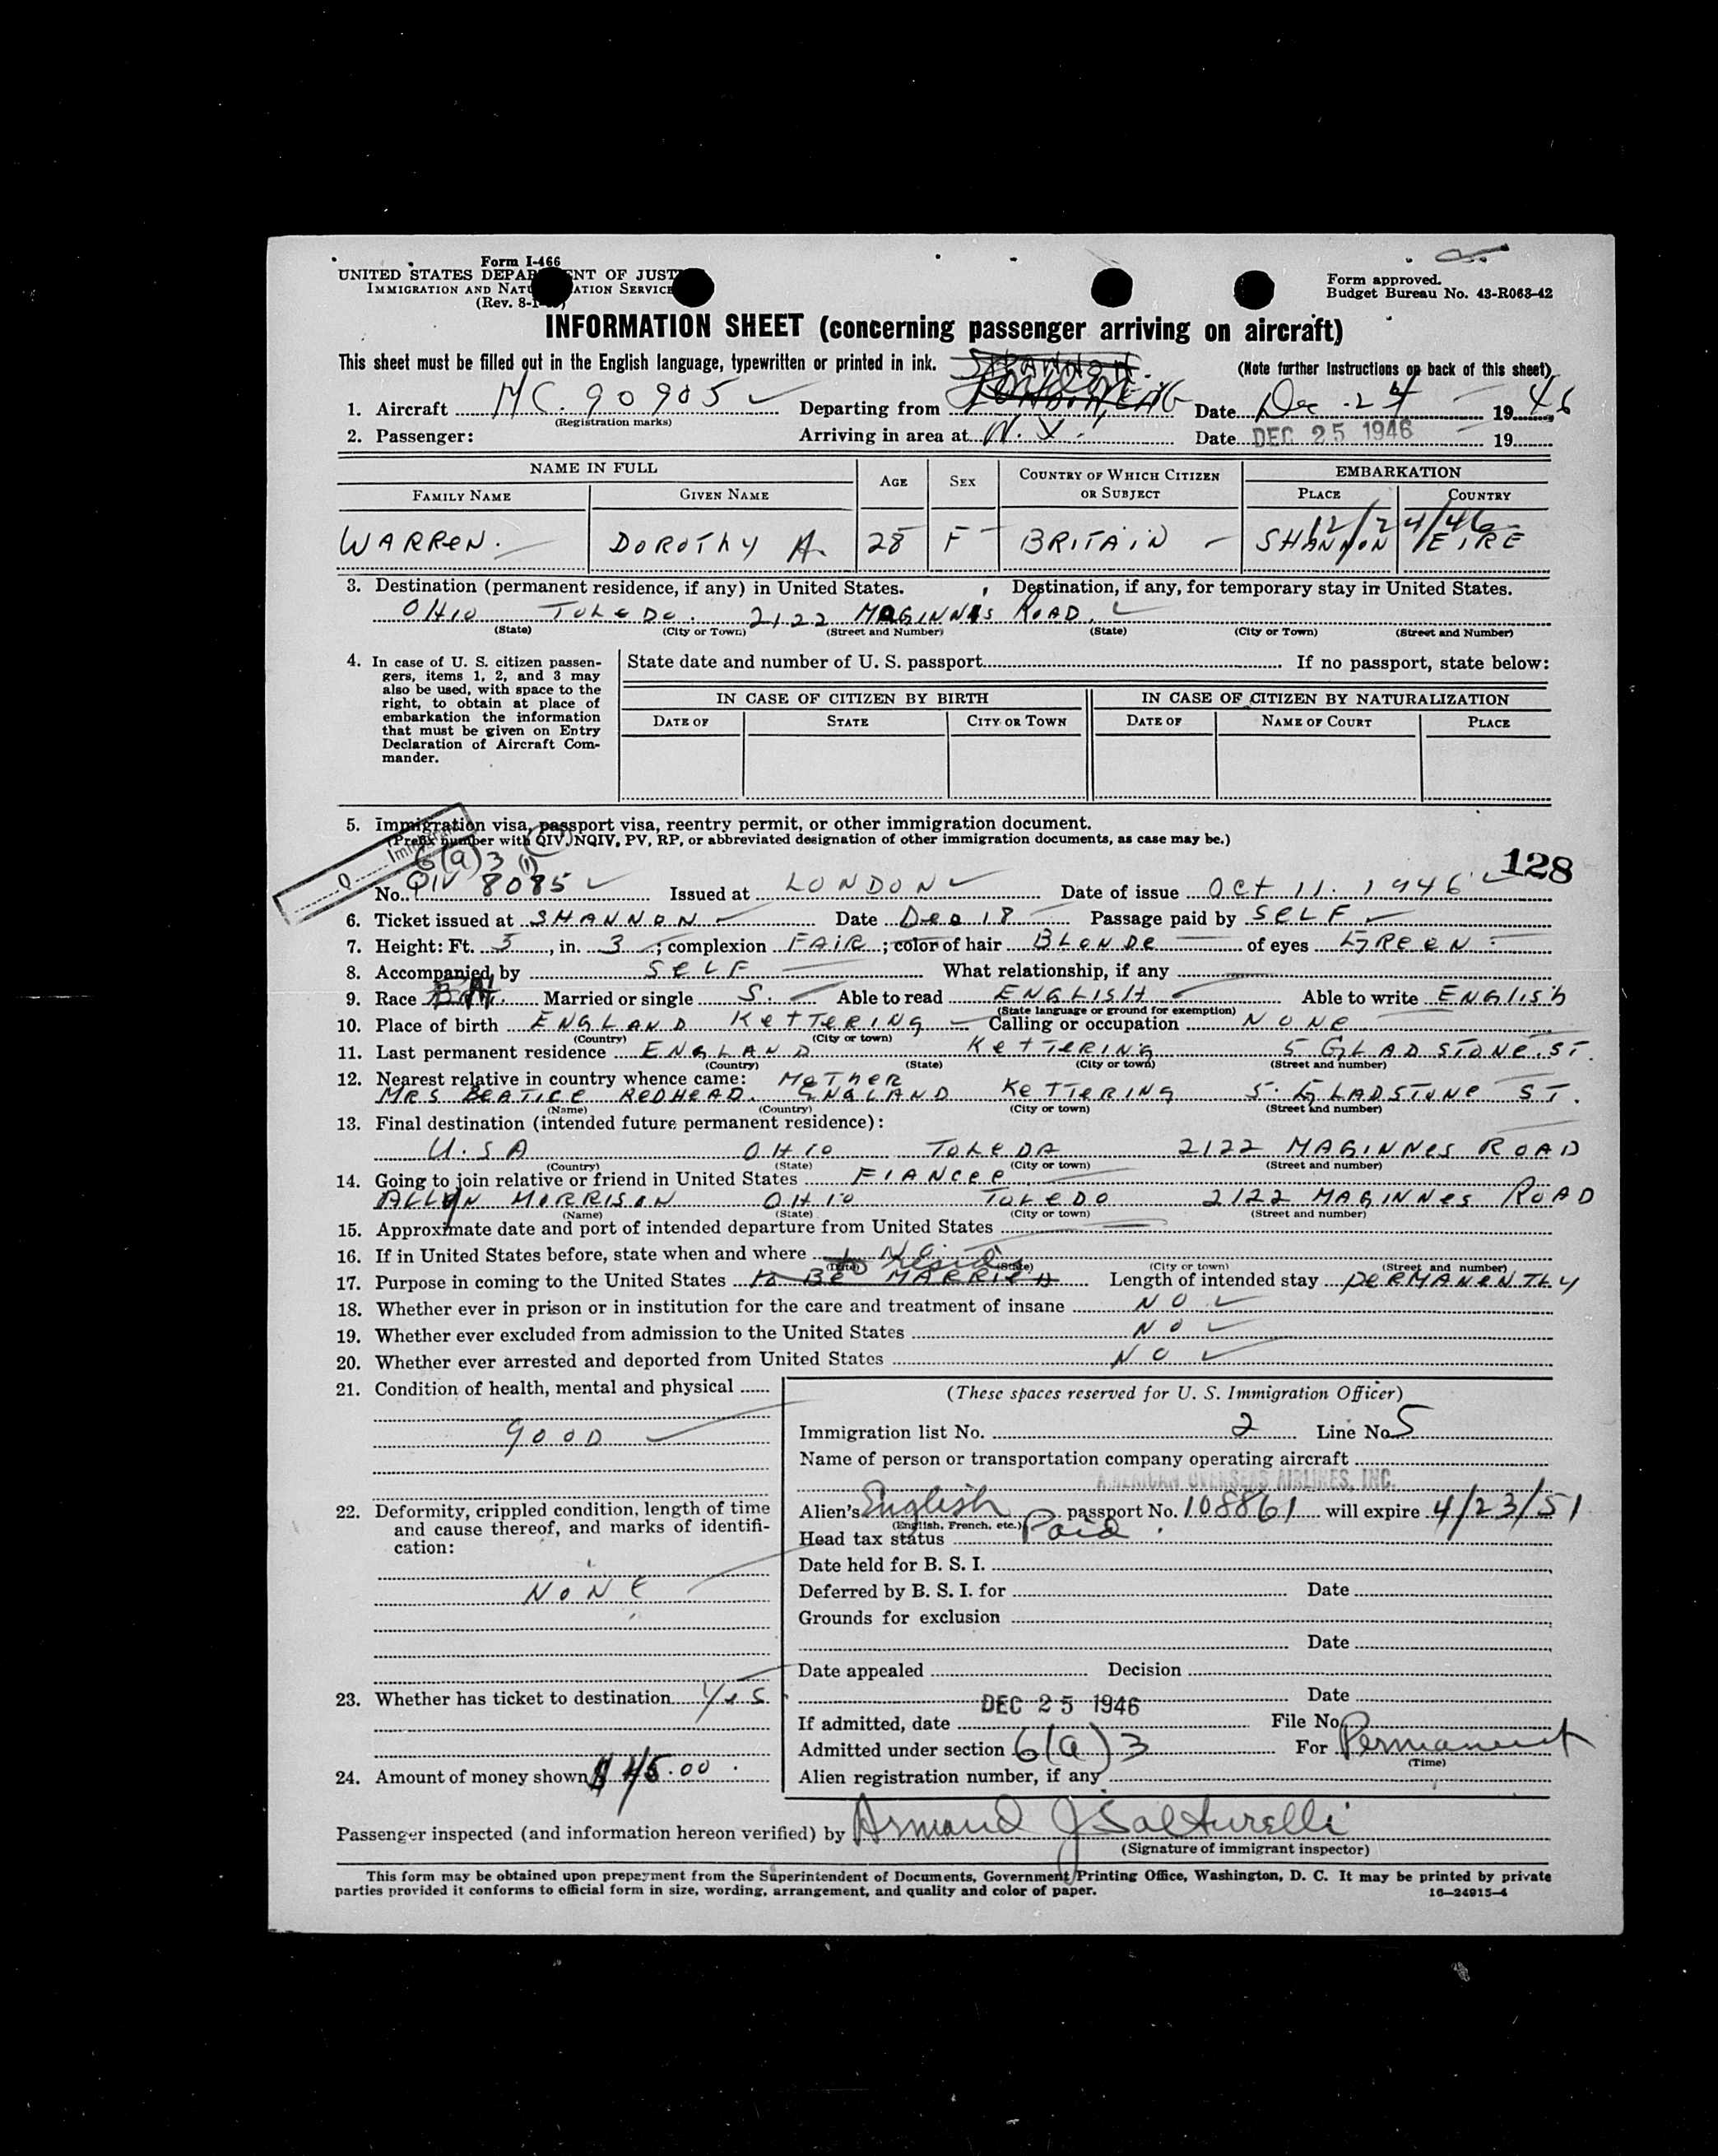 Form I-466
UNITED STATES DEPARTMENT OF JUSTICE
IMMIGRATION AND NATURALIZATION SERVICE
(Rev. 8-1-
Form approved.
Budget Bureau No. 43-R063-42
INFORMATION SHEET (concerning passenger arriving on aircraft)
This sheet must be filled out in the English language, typewritten or printed in ink. SHANNON. (Note further instructions on back of this sheet)
1. Aircraft NC. 90905 Departing from LONDON, ENG Date Dec. 24 1946
(Registration marks)
2. Passenger: Arriving in area at N. Y. Date DEC 25 1946 19
NAME IN FULL AGE SEX COUNTRY OF WHICH CITIZEN OR SUBJECT EMBARKATION
FAMILY NAME GIVEN NAME PLACE COUNTRY
12/24/46
WARREN. DOROTHY A. 28 F BRITAIN SHANNON EIRE
3. Destination (permanent residence, if any) in United States. Destination, if any, for temporary stay in United States.
OHIO TOLEDO. 2122 MAGINNIS ROAD.
(State) (City or Town) (Street and Number) (State) (City or Town) (Street and Number)
4. In case of U. S. citizen passen-
gers, items 1, 2, and 3 may
also be used, with space to the
right, to obtain at place of
embarkation the information
that must be given on Entry
Declaration of Aircraft Com-
mander.
State date and number of U. S. passport If no passport, state below:
IN CASE OF CITIZEN BY BIRTH IN CASE OF CITIZEN BY NATURALIZATION
DATE OF STATE CITY OR TOWN DATE OF NAME OF COURT PLACE
5. Immigration visa, passport visa, reentry permit, or other immigration document.
(Prefix number with QIV, NQIV, PV, RP, or abbreviated designation of other immigration documents, as case may be.)
6(a)3 (1)
128
No. QIV 8085 Issued at LONDON Date of issue Oct 11. 1946
6. Ticket issued at SHANNON Date Dec 18 Passage paid by SELF
7. Height: Ft. 5, in. 3; complexion FAIR; color of hair BLONDE of eyes GREEN
8. Accompanied by SELF What relationship, if any
9. Race Married or single S. Able to read ENGLISH Able to write ENGLISh
(State language or ground for exemption)
10. Place of birth ENGLAND KETTERING Calling or occupation NONE
(Country) (City or town)
11. Last permanent residence ENGLAND KETTERING 5 GLADSTONE. ST.
(Country) (State) (City or town) (Street and number)
12. Nearest relative in country whence came: MOTHER
MRS BEATICE REDHEAD. ENGLAND KETTERING 5. GLADSTONE ST.
(Name) (Country) (City or town) (Street and number)
13. Final destination (intended future permanent residence):
U.S.A OHIO TOLEDA 2122 MAGINNES ROAD
(Country) (State) (City or town) (Street and number)
14. Going to join relative or friend in United States FIANCEE
ALLYN MORRISON OHIO TOLEDO 2122 MAGINNES ROAD
(Name) (State) (City or town) (Street and number)
15. Approximate date and port of intended departure from United States
16. If in United States before, state when and where NO.
(Date) (State) (City or town) (Street and number)
to reside
17. Purpose in coming to the United States to BE MARRIED Length of intended stay PERMANENTLY
18. Whether ever in prison or in institution for the care and treatment of insane NO
19. Whether ever excluded from admission to the United States NO
20. Whether ever arrested and deported from United States NO
21. Condition of health, mental and physical
GOOD
22. Deformity, crippled condition, length of time
and cause thereof, and marks of identifi-
cation:
NONE
23. Whether has ticket to destination Yes
24. Amount of money shown $ 45.00
(These spaces reserved for U. S. Immigration Officer)
Immigration list No. 2 Line No. 5
Name of person or transportation company operating aircraft
AMERICAN OVERSEAS AIRLINES, INC.
Alien's English passport No. 108861 will expire 4/23/51
(English, French, etc.)
Head tax status Paid
Date held for B. S. I.
Deferred by B. S. I. for Date
Grounds for exclusion
Date
Date appealed Decision
Date
If admitted, date DEC 25 1946 File No.
Admitted under section 6(a)3 For Permanent
(Time)
Alien registration number, if any
Passenger inspected (and information hereon verified) by Armand J Salturelli
(Signature of immigrant inspector)
This form may be obtained upon prepayment from the Superintendent of Documents, Government Printing Office, Washington, D. C. It may be printed by private
parties provided it conforms to official form in size, wording, arrangement, and quality and color of paper. 16—24915-4